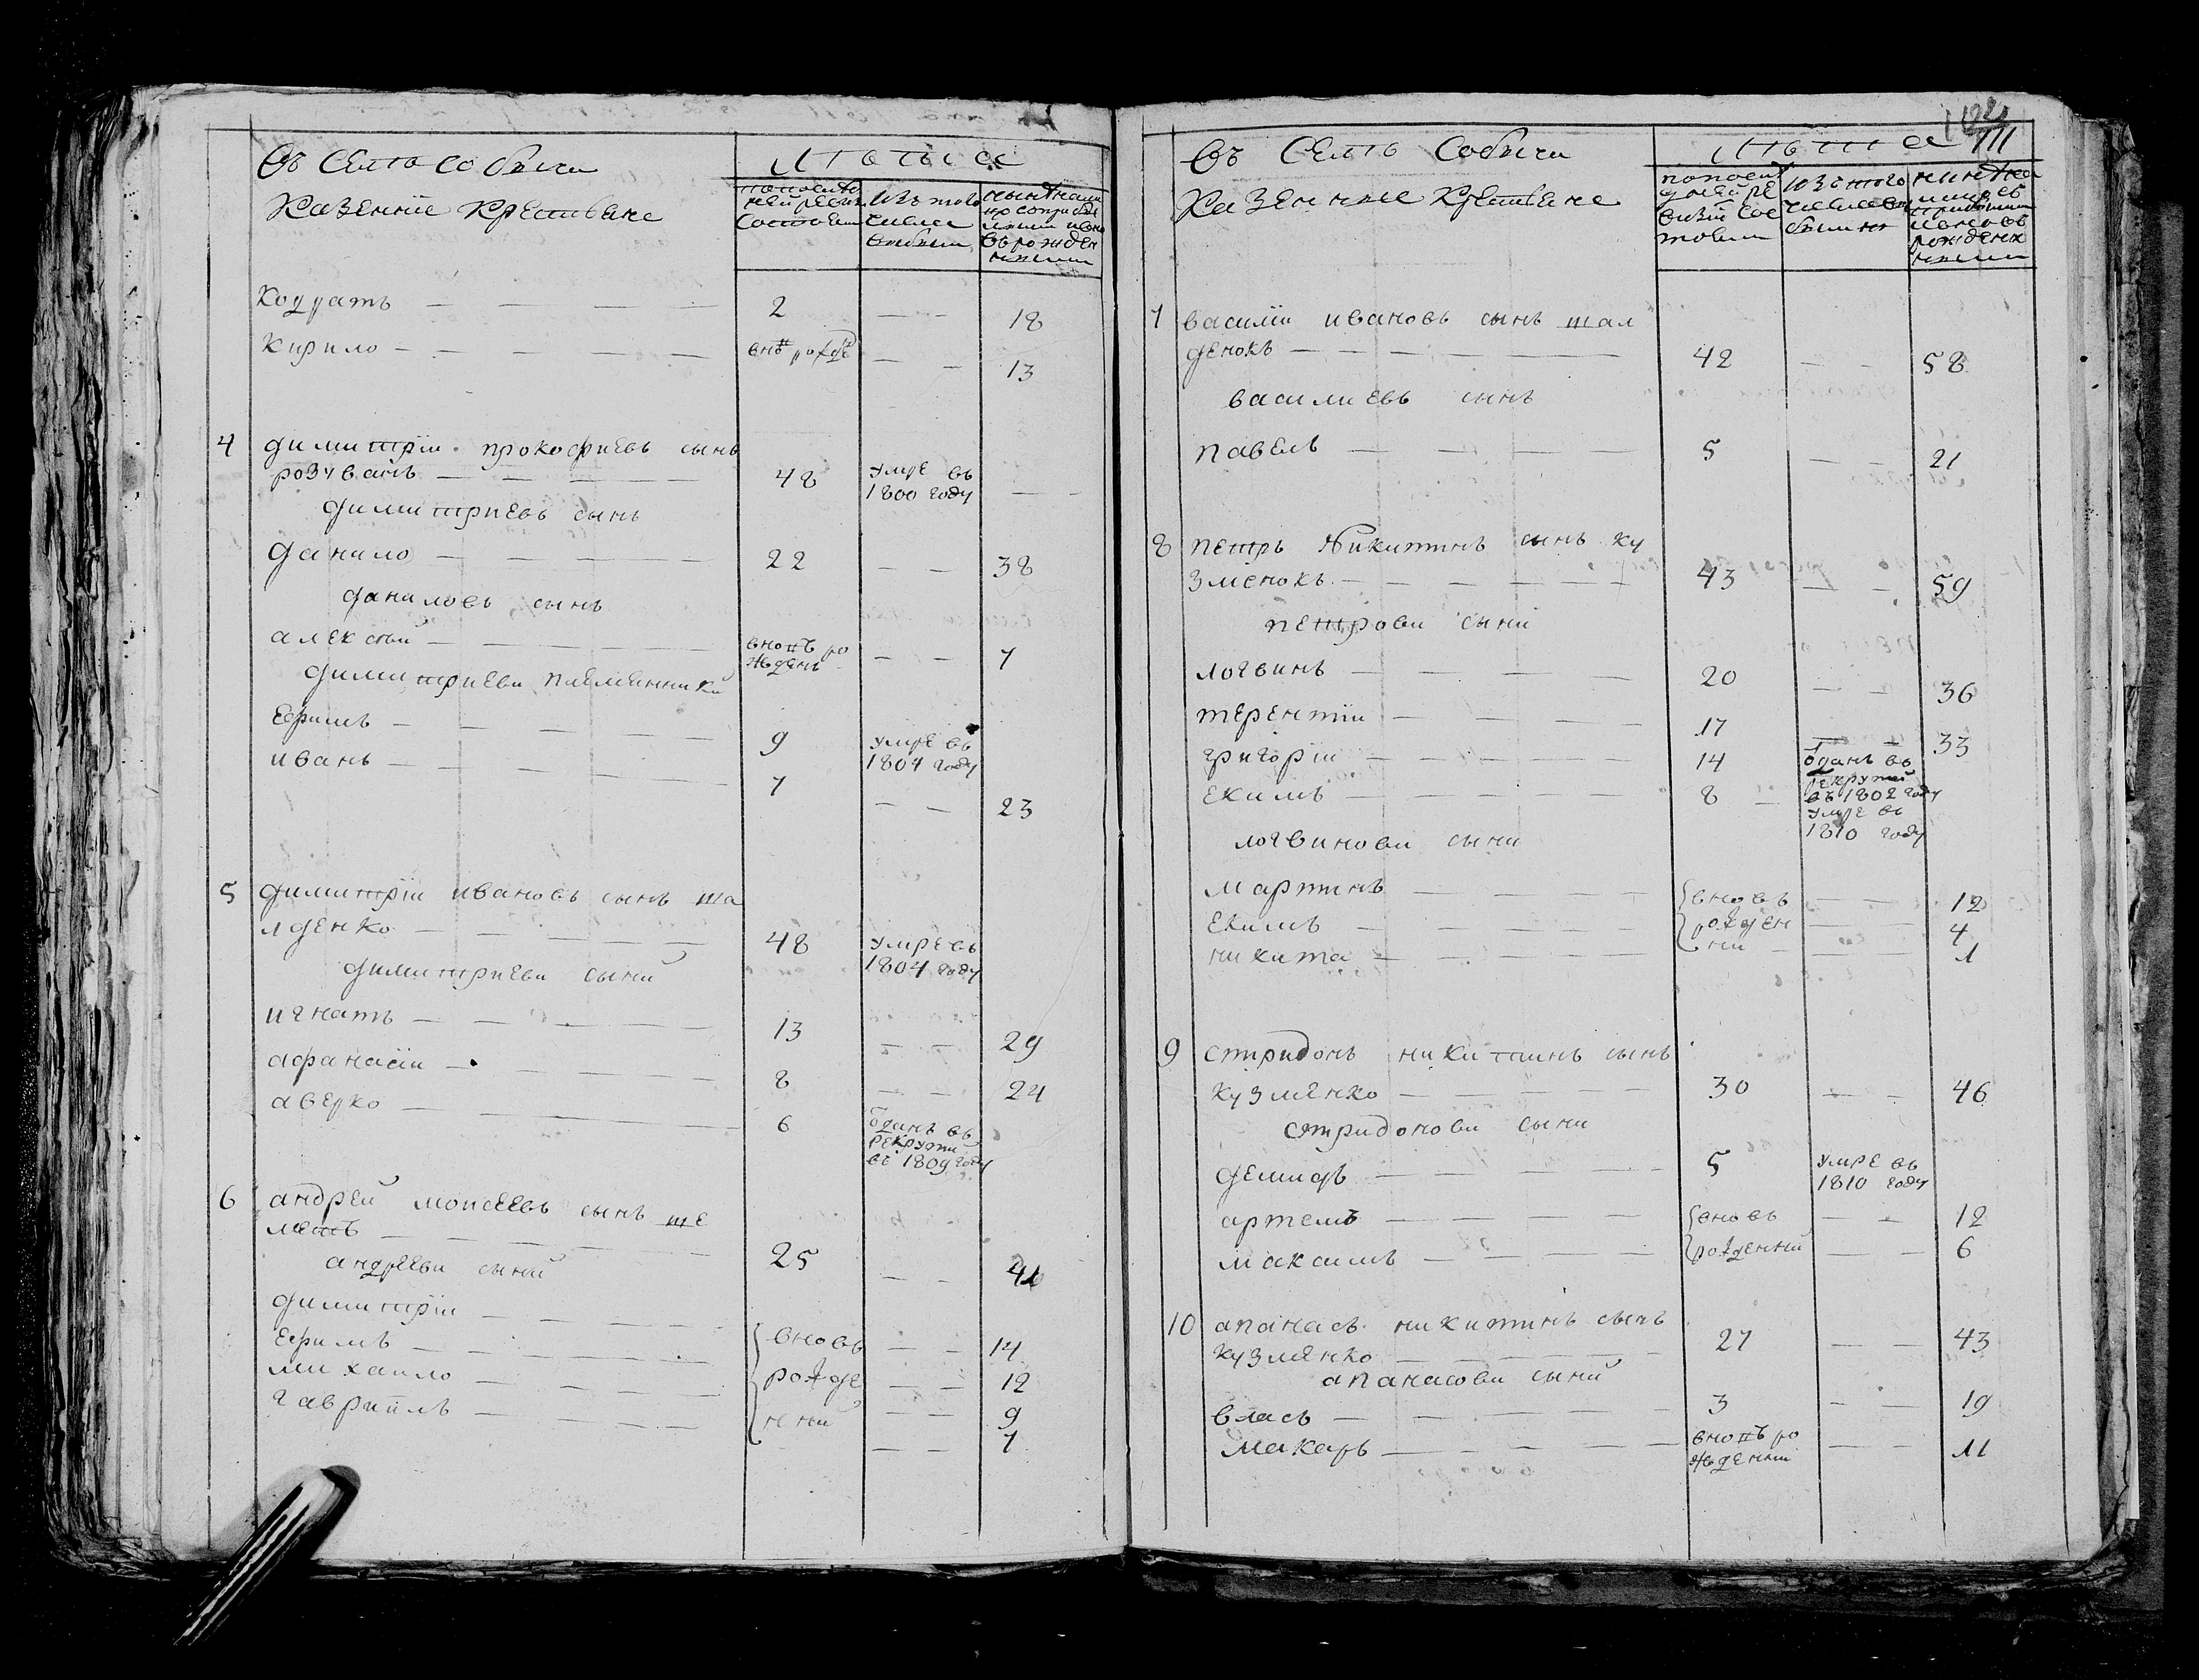 Въ Селѣ Собычи
Казенніе Крестьяне
Лѣта
попослѣд
ней ревизіи
Состояли
Изъ того
числа
выбыли
Кодратъ — — — — 2 — — 18
Кирило — — — — внѣ рожд — — 13
4 димитрій прокофиевъ сынъ
розуванъ — — — — 48 умре въ 1800 году — —
димитриевъ сынъ
данило — — — — 22 — — 38
даниловъ сынъ
алексѣй — — — — вновъ рожденъ — — 7
димитриеви племенники
Ефимъ — — — — 9 умре въ 1804 году
иванъ — — — — 7 — — 23
5 димитрій ивановъ сынъ ша
лденко — — — — 48 умре въ 1804 году
димитриеви сыни
игнатъ — — — — 13 — — 29
афанасій — — — — 8 — — 24
аверко — — — — 6 ѿданъ въ рекрути въ 1809 году
6 андрей моисеевъ сынъ ше
метъ — — — — 25 — — 41
андрееви сыни
димитрій — — — — вновь — — 14
Ефимъ — — — — рожде — — 12
михаило — — — — нни — — 9
гавриилъ — — — — — — 7
111
Въ Селѣ Собычи
Казенные Крестьяне
Лѣта
попослѣд
ней ре
визіи сос
тояли
Изъ того
числа вы
были
7 василій ивановъ сынъ шал
денокъ — — — — 42 — — 58
василиевъ сынъ
павелъ — — — — 5 — — 21
8 петръ Никитинъ сынъ ку
зменокъ — — — — 43 — — 59
петрови сыни
логвинъ — — — — 20 — — 36
терентій — — — — 17 — — 33
григорій — — — — 14 ѿданъ въ рекрути въ 1802 году
Екимъ — — — — 8 — умре въ 1810 году
логвинови сыни
мартинъ — — — — вновъ — — 12
Екимъ — — — — рожден — — 4
никита — — — — ни — — 1
9 спридонъ никитинъ сынъ
кузменко — — — — 30 — — 46
спридонови сыни
демидъ — — — — 5 умре въ 1810 году
артемъ — — — — вновь — — 12
максимъ — — — — рожденни — — 6
10 апанасъ никитинъ сынъ
кузменко — — — — 27 — — 43
апанасови сыни
власъ — — — — 3 — — 19
макаръ — — — — вновъ рожденни — — 11